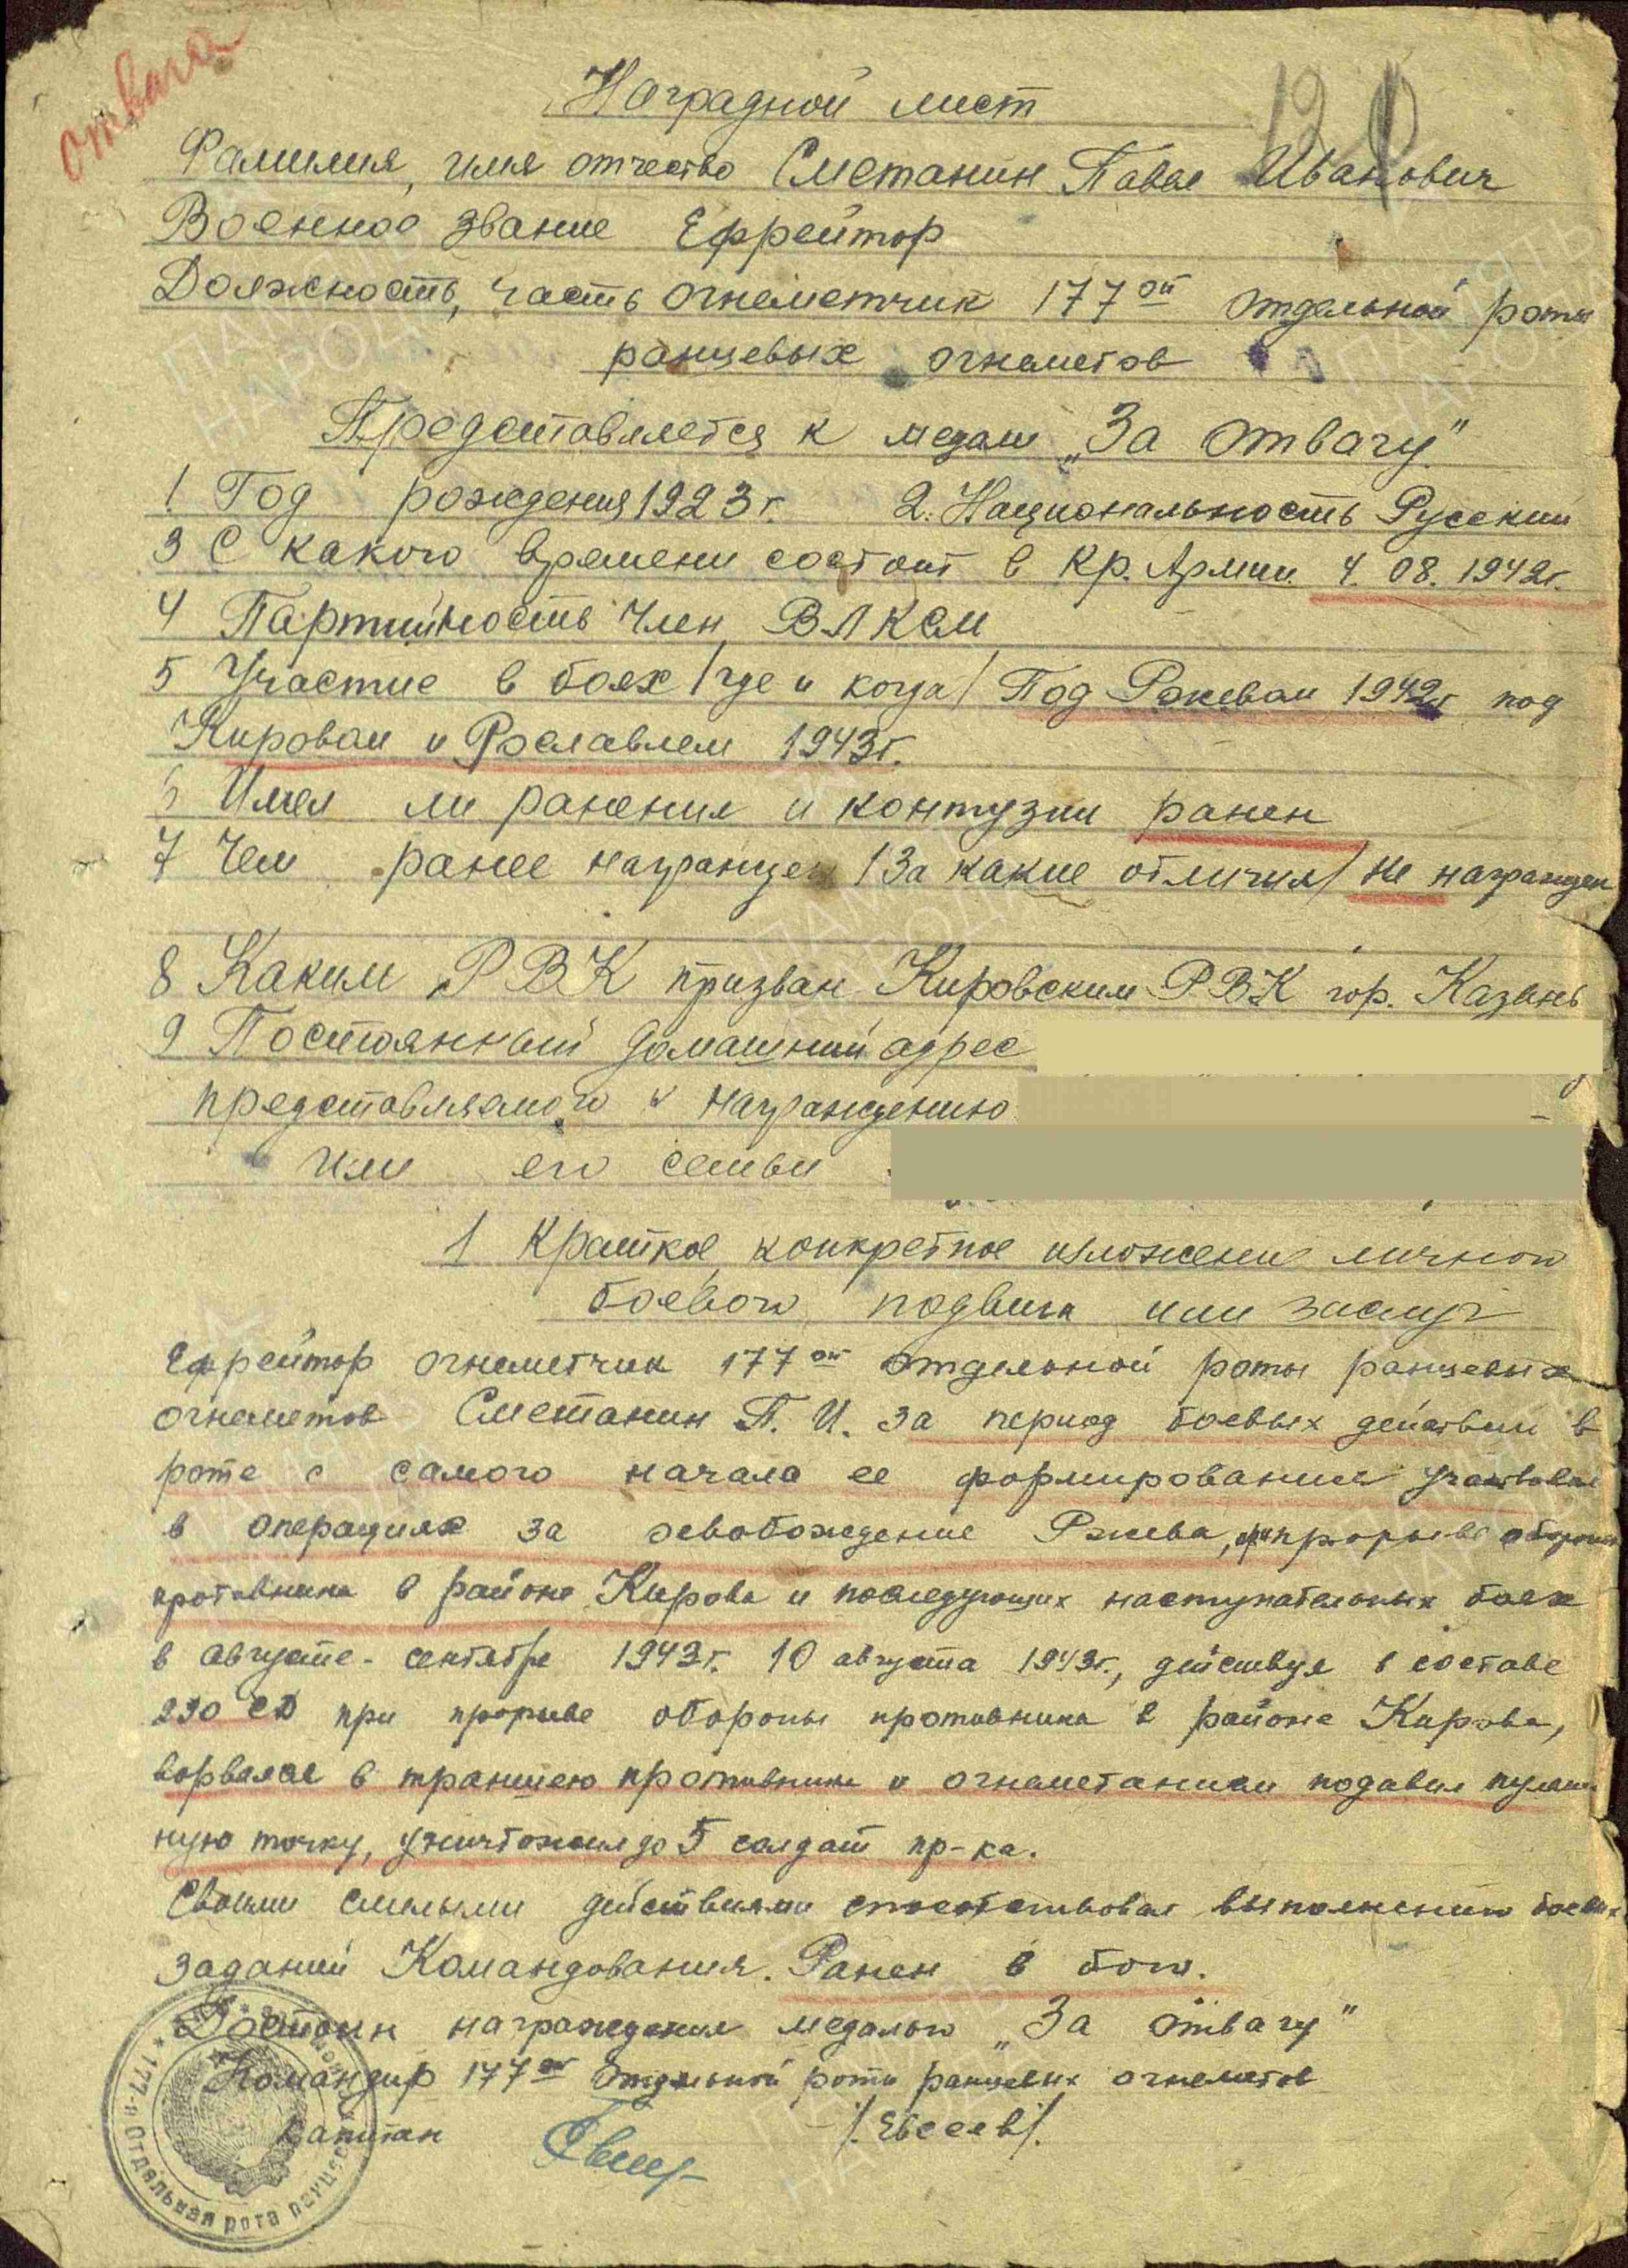 отвага
Наградной лист
Фамилия, имя отчество Сметанин Павел Иванович
Военное звание Ефрейтор
Должность, часть огнеметчик 177ой отдельной роты
ранцевых огнеметов
Представляется к медали „За отвагу"
1 Год рождения 1923 г. 2. Национальность Русский
3 С какого времени состоит в Кр. Армии 4. 08. 1942г.
4 Партийность Член ВЛКСМ
5 Участие в боях /где и когда/ Под Ржевом 1942г под
Кировом и Рославлем 1943г.
6 Имел ли ранения и контузии ранен
7 Чем ранее награжден /За какие отличия/ Не награжден
8 Каким РВК призван Кировским РВК гор. Казань
9 Постоянный домашний адрес
представляемого к награждению
или его семьи
1 Краткое, конкретное изложение личного
боевого подвига или заслуг
Ефрейтор огнеметчик 177ой отдельной роты ранцевых
огнеметов Сметанин П. И. за период боевых действий в
роте с самого начала ее формирования участвовал
в операциях за освобождение Ржева, прорыве обороны
противника в районе Кирова и последующих наступательных боях
в августе-сентябре 1943г. 10 августа 1943г., действуя в составе
290 СД при прорыве обороны противника в районе Кирова,
ворвался в траншею противника и огнеметанием подавил пулемет
ную точку, уничтожил до 5 солдат пр-ка.
Своими смелыми действиями способствовал выполнению боевых
заданий Командования. Ранен в бою.
Достоин награждения медалью „За отвагу"
Командир 177ой отдельной роты ранцевых огнеметов
Капитан /Евсеев/.
177-я Отдельная рота ранцевых